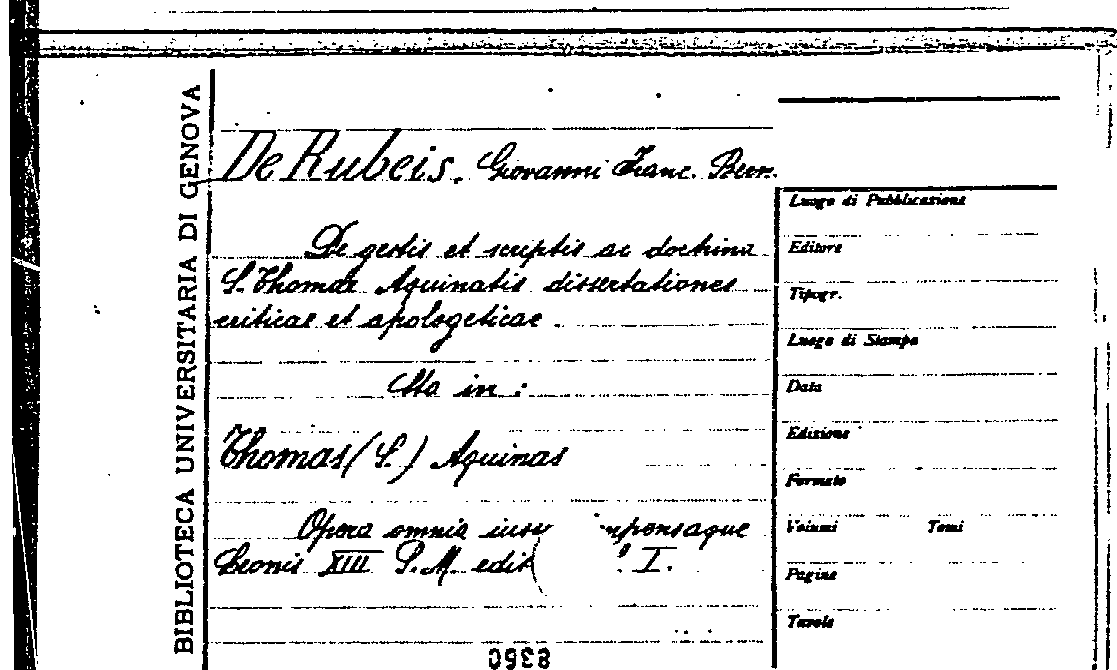 BIBLIOTECA UNIVERSITARIA DI GENOVA
De Rubeis. Giovanni Franc. Bern.
De gestis et scriptis ac doctrina
S. Thomae Aquinatis dissertationes
criticae et apologeticae
Sta in:
Thomas (S.) Aquinas
Opera omnia iussu
Leonis XIII P. M. edit I.
Luogo di Pubblicazione
Editore
Tipogr.
Luogo di Stampa
Data
Edizione
Formato
Volumi Tomi
Pagine
Tavole
8360